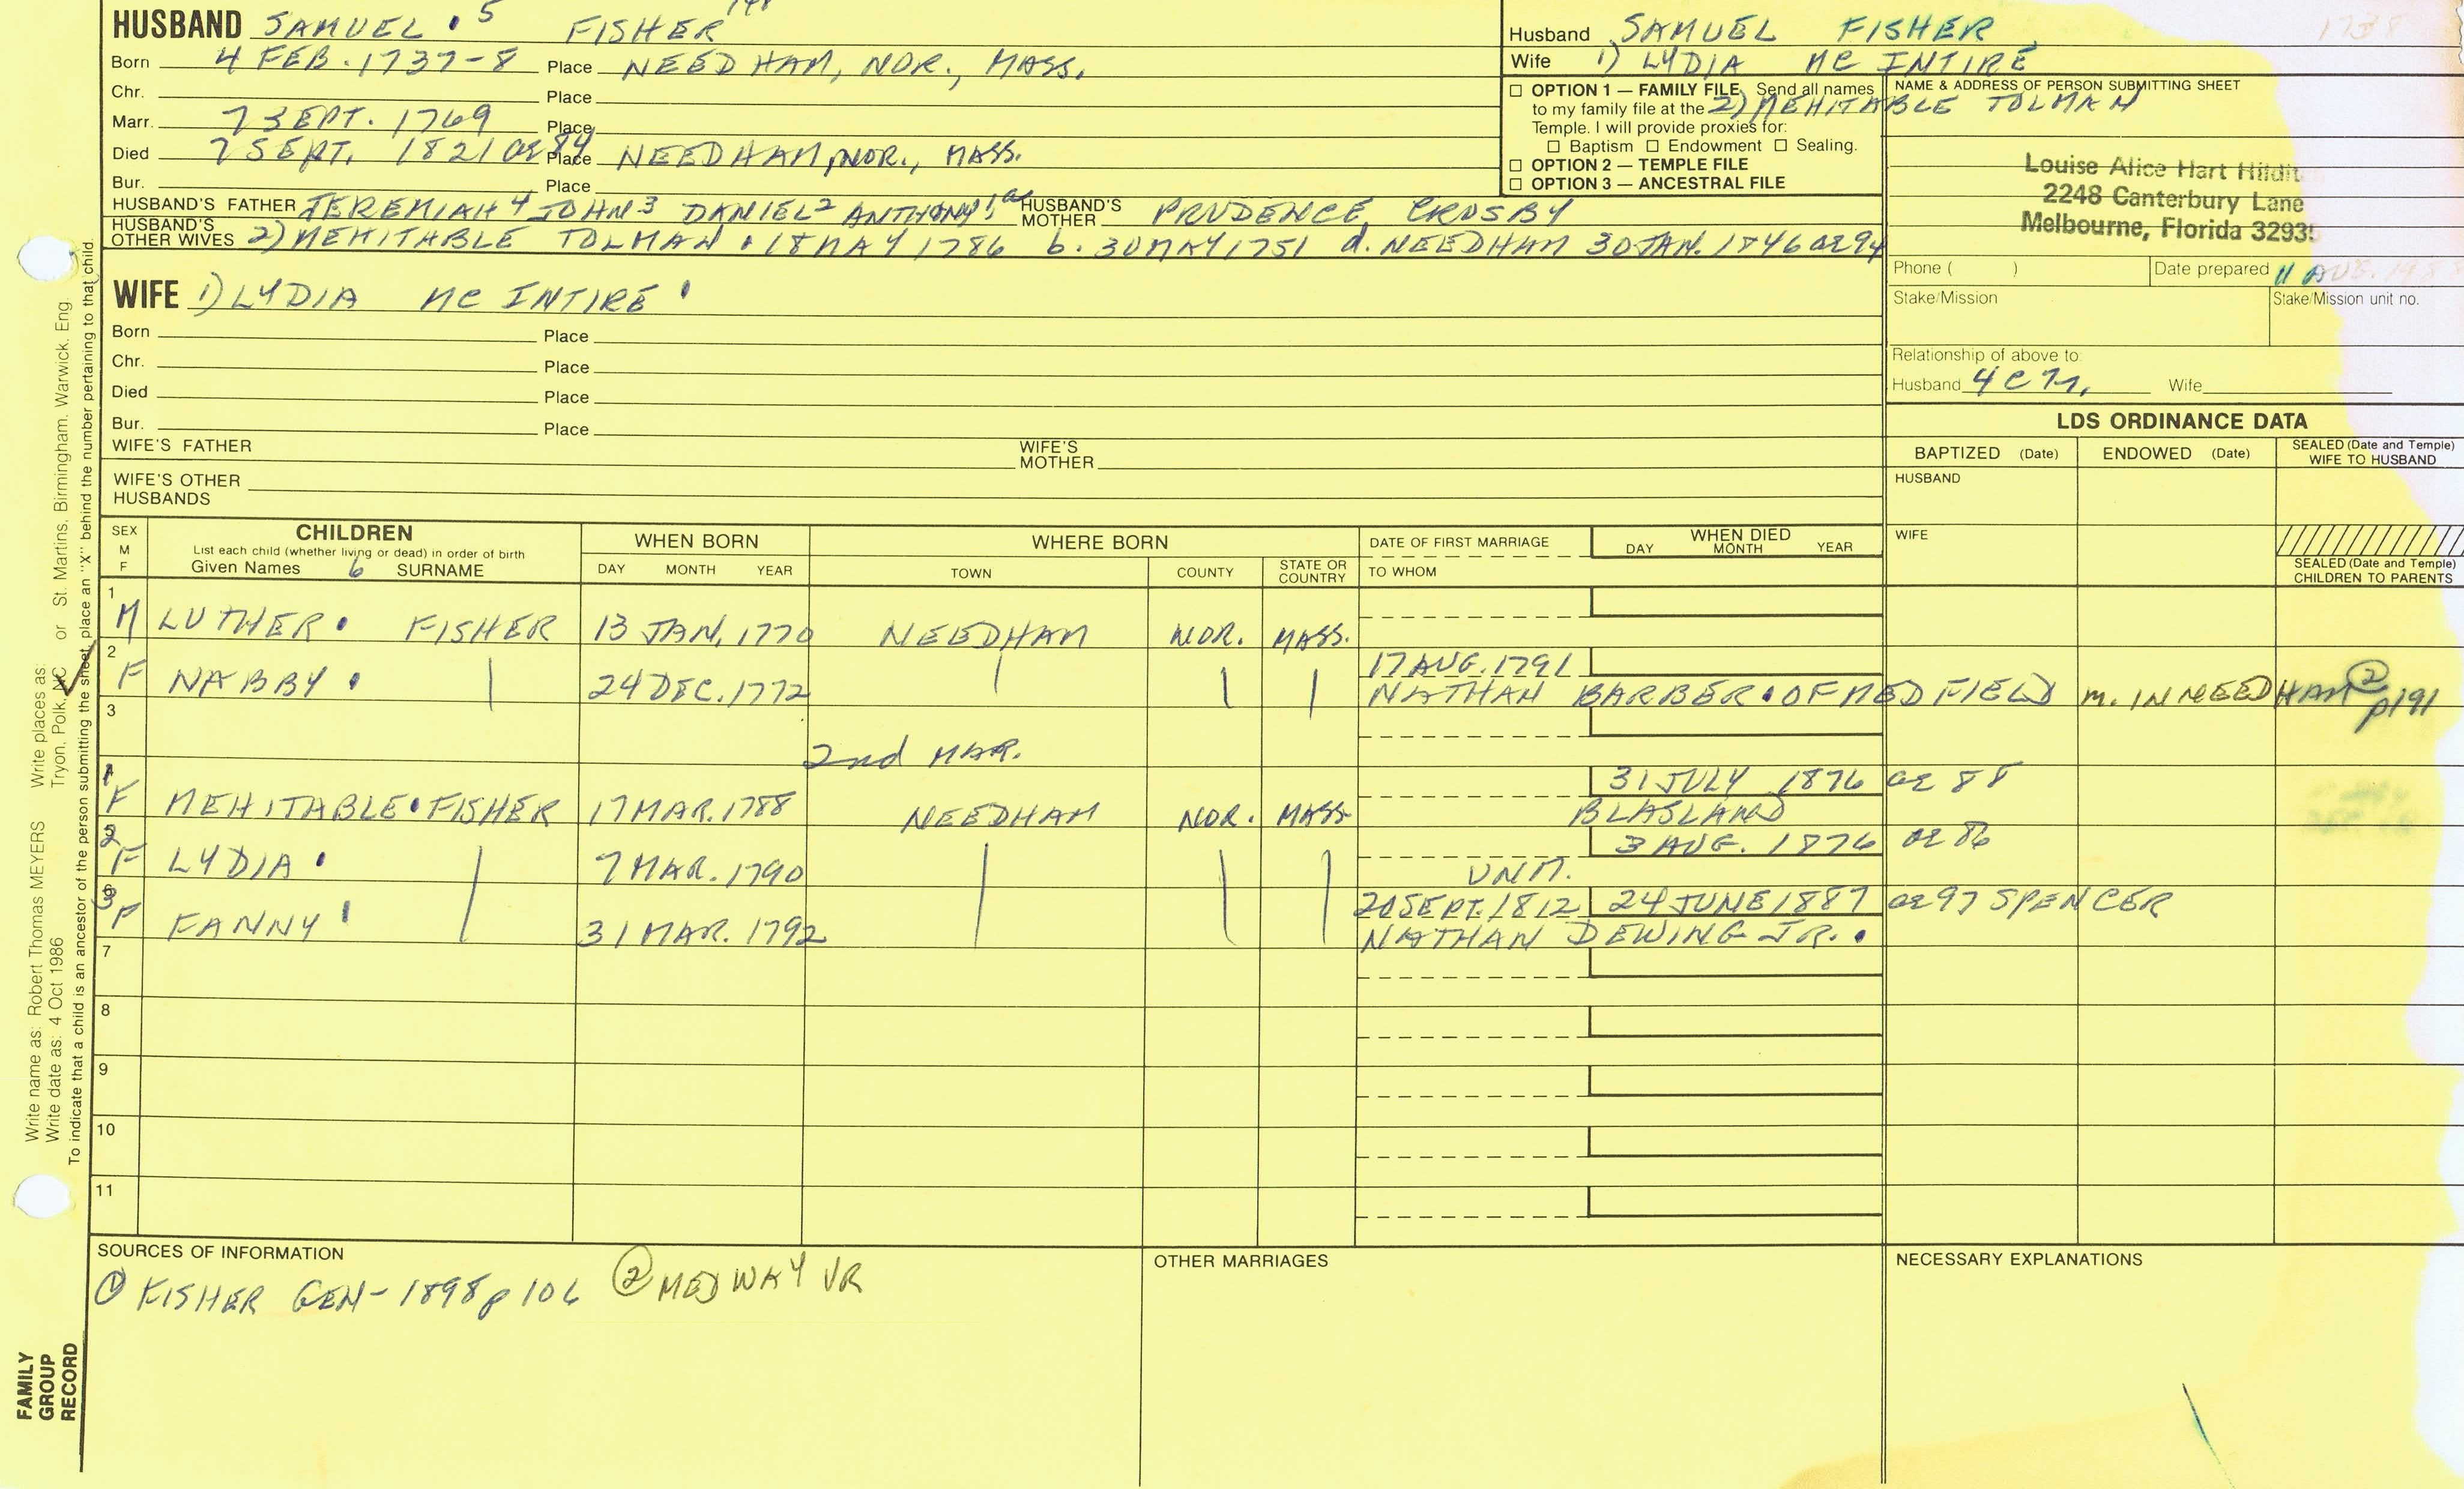 HUSBAND SAMUEL • 5 FISHER
Born 4 FEB. 1737-8 Place NEEDHAM, NOR., MASS.
Chr. Place
Marr. 7 SEPT. 1769 Place
Died 7 SEPT. 1821 ae 84 Place NEEDHAM, NOR., MASS.
Bur. Place
HUSBAND'S FATHER JEREMIAH 4 JOHN 3 DANIEL 2 ANTHONY 1 HUSBAND'S MOTHER PRUDENCE CROSBY
HUSBAND'S OTHER WIVES 2) MEHITABLE TOLMAN • 18 MAY 1786 b. 30 MAY 1751 d. NEEDHAM 30 JAN. 1846 ae 94
Husband SAMUEL FISHER
1738
Wife 1) LYDIA MC INTIRE
2) MEHITABLE TOLMAN
☐ OPTION 1 — FAMILY FILE. Send all names
to my family file at the
Temple. I will provide proxies for:
☐ Baptism ☐ Endowment ☐ Sealing.
☐ OPTION 2 — TEMPLE FILE
☐ OPTION 3 — ANCESTRAL FILE
NAME & ADDRESS OF PERSON SUBMITTING SHEET
Louise Alice Hart
2248 Canterbury Lane
Melbourne, Florida 3293
Phone ( ) Date prepared 11 AUG. 198
Stake/Mission Stake/Mission unit no.
Relationship of above to:
Husband 4C Wife
WIFE 1) LYDIA MC INTIRE •
Born Place
Chr. Place
Died Place
Bur. Place
WIFE'S FATHER WIFE'S MOTHER
WIFE'S OTHER HUSBANDS
LDS ORDINANCE DATA
BAPTIZED (Date) ENDOWED (Date) SEALED (Date and Temple) WIFE TO HUSBAND
HUSBAND
WIFE
SEALED (Date and Temple) CHILDREN TO PARENTS
SEX M F
CHILDREN
List each child (whether living or dead) in order of birth
Given Names 6 SURNAME
WHEN BORN
DAY MONTH YEAR
WHERE BORN
TOWN COUNTY STATE OR COUNTRY
DATE OF FIRST MARRIAGE
TO WHOM
WHEN DIED
DAY MONTH YEAR
1 M LUTHER • FISHER 13 JAN. 1770 NEEDHAM NOR. MASS.
2 F NABBY • | 24 DEC. 1772 | | | 17 AUG. 1791
NATHAN BARBER • OF MEDFIELD m. IN NEEDHAM ② p191
3
2nd MAR.
1 F MEHITABLE • FISHER 17 MAR. 1788 NEEDHAM NOR. MASS. 31 JULY 1876 ae 88
BLASLAND
2 F LYDIA • | 7 MAR. 1790 | | | 3 AUG. 1876 ae 86
UNM.
3 F FANNY • 31 MAR. 1792 20 SEPT. 1812 24 JUNE 1887 ae 97 SPENCER
NATHAN DEWING JR. •
7
8
9
10
11
SOURCES OF INFORMATION
① FISHER GEN- 1898 p 106 ② MEDWAY VR
OTHER MARRIAGES
NECESSARY EXPLANATIONS
Write name as: Robert Thomas MEYERS Write places as: Tryon, Polk, NC or St. Martins, Birmingham, Warwick, Eng
Write date as: 4 Oct 1986
To indicate that a child is an ancestor of the person submitting the sheet, place an "X" behind the number pertaining to that child.
FAMILY
GROUP
RECORD